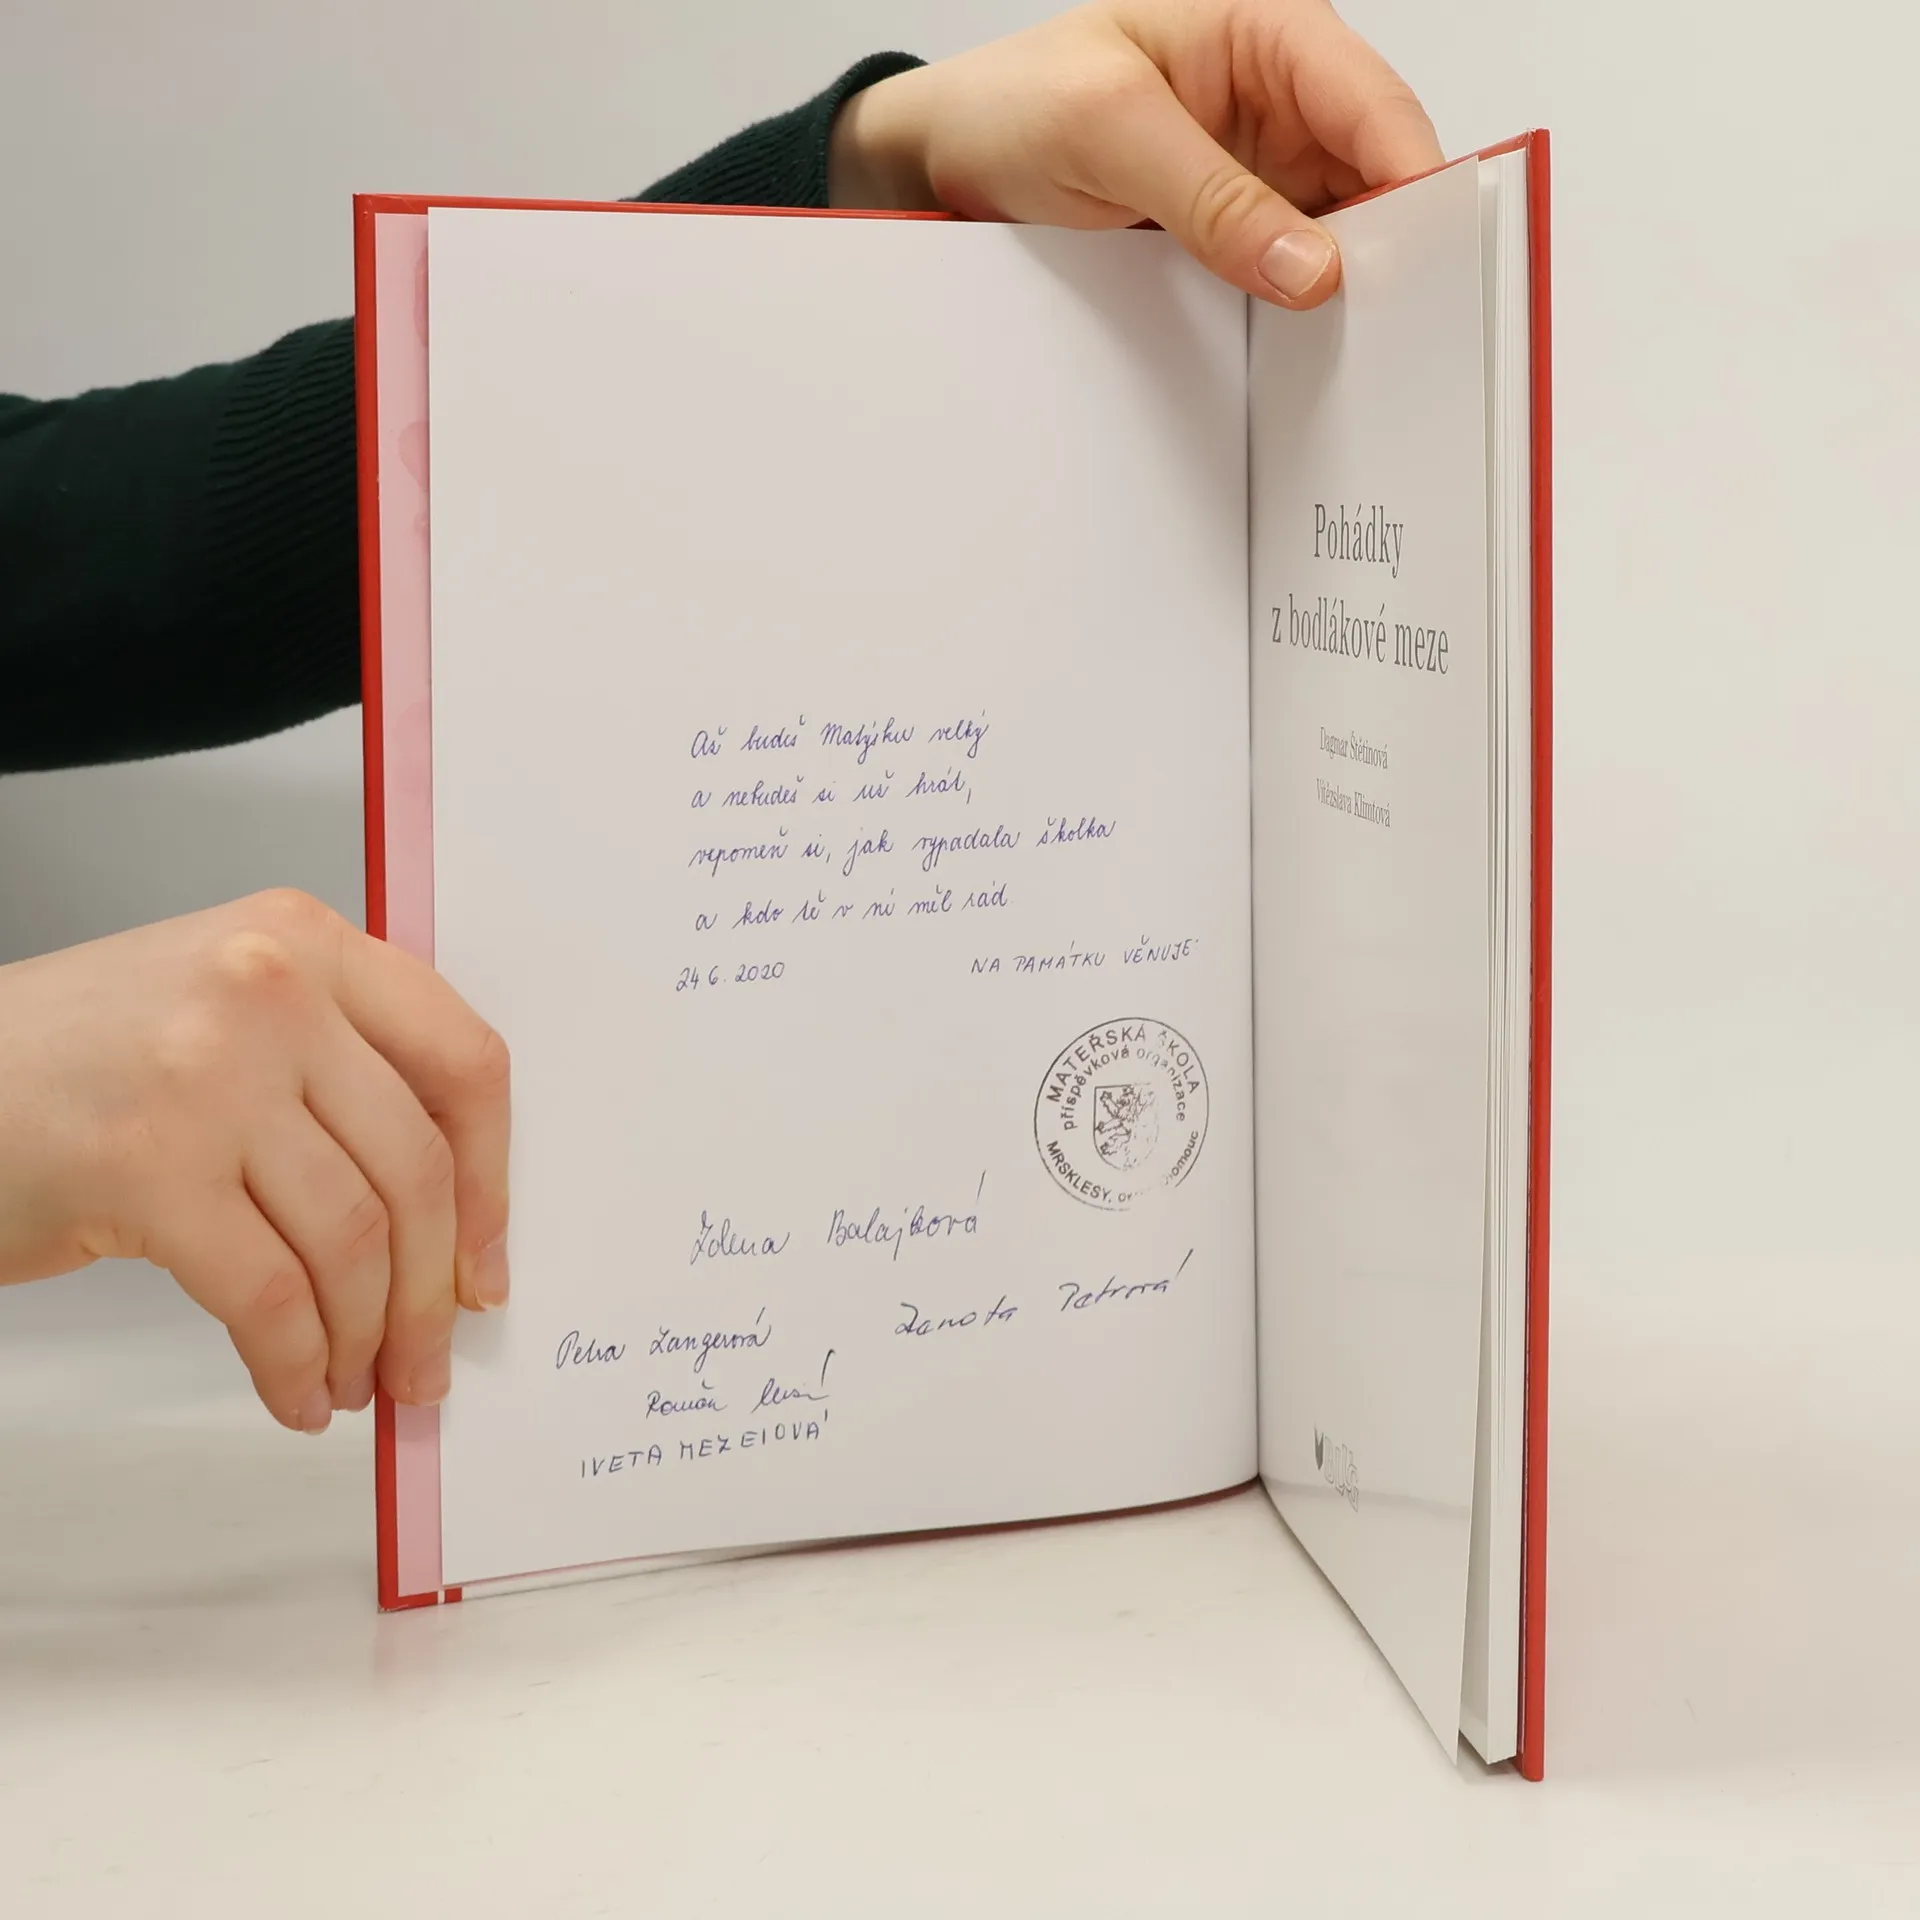 Až budeš Matýsku velký
a nebudeš si už hrát,
vzpomeň si, jak vypadala školka
a kdo tě v ní měl rád.
24 6. 2020
NA PAMÁTKU VĚNUJE:
MATEŘSKÁ ŠKOLA
příspěvková organizace
MRSKLESY, Olomouc
Zdena Balajková
Petra Langerová
Danota Petrová
Roman
IVETA MEZEIOVÁ
Pohádky
z bodlákové meze
Dagmar Štětinová
Vítězslava Klimtová